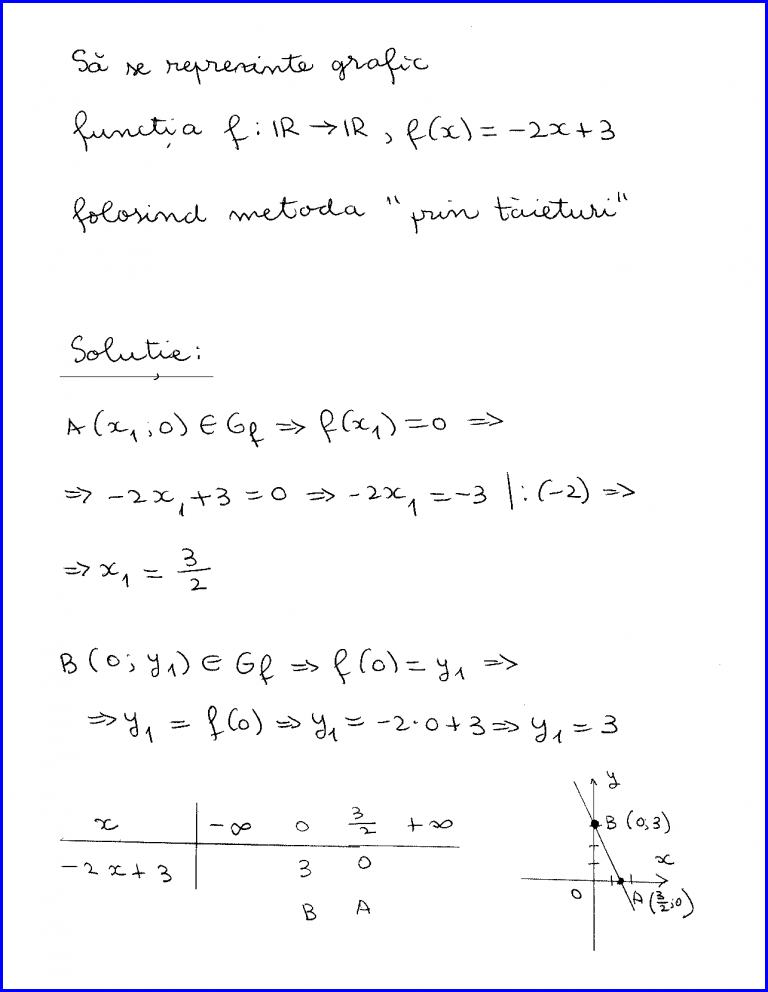 Să se reprezinte grafic
funcția f : ℝ → ℝ, f(x) = -2x + 3
folosind metoda "prin tăieturi"
Soluție:
A(x₁; 0) ∈ Gf ⇒ f(x₁) = 0 ⇒
⇒ -2x₁ + 3 = 0 ⇒ -2x₁ = -3 |: (-2) ⇒
⇒ x₁ = 3/2
B(0; y₁) ∈ Gf ⇒ f(0) = y₁ ⇒
⇒ y₁ = f(0) ⇒ y₁ = -2·0 + 3 ⇒ y₁ = 3
x | -∞ 0 3/2 +∞
-2x + 3 | 3 0
B A
y
B (0;3)
x
0
A(3/2;0)